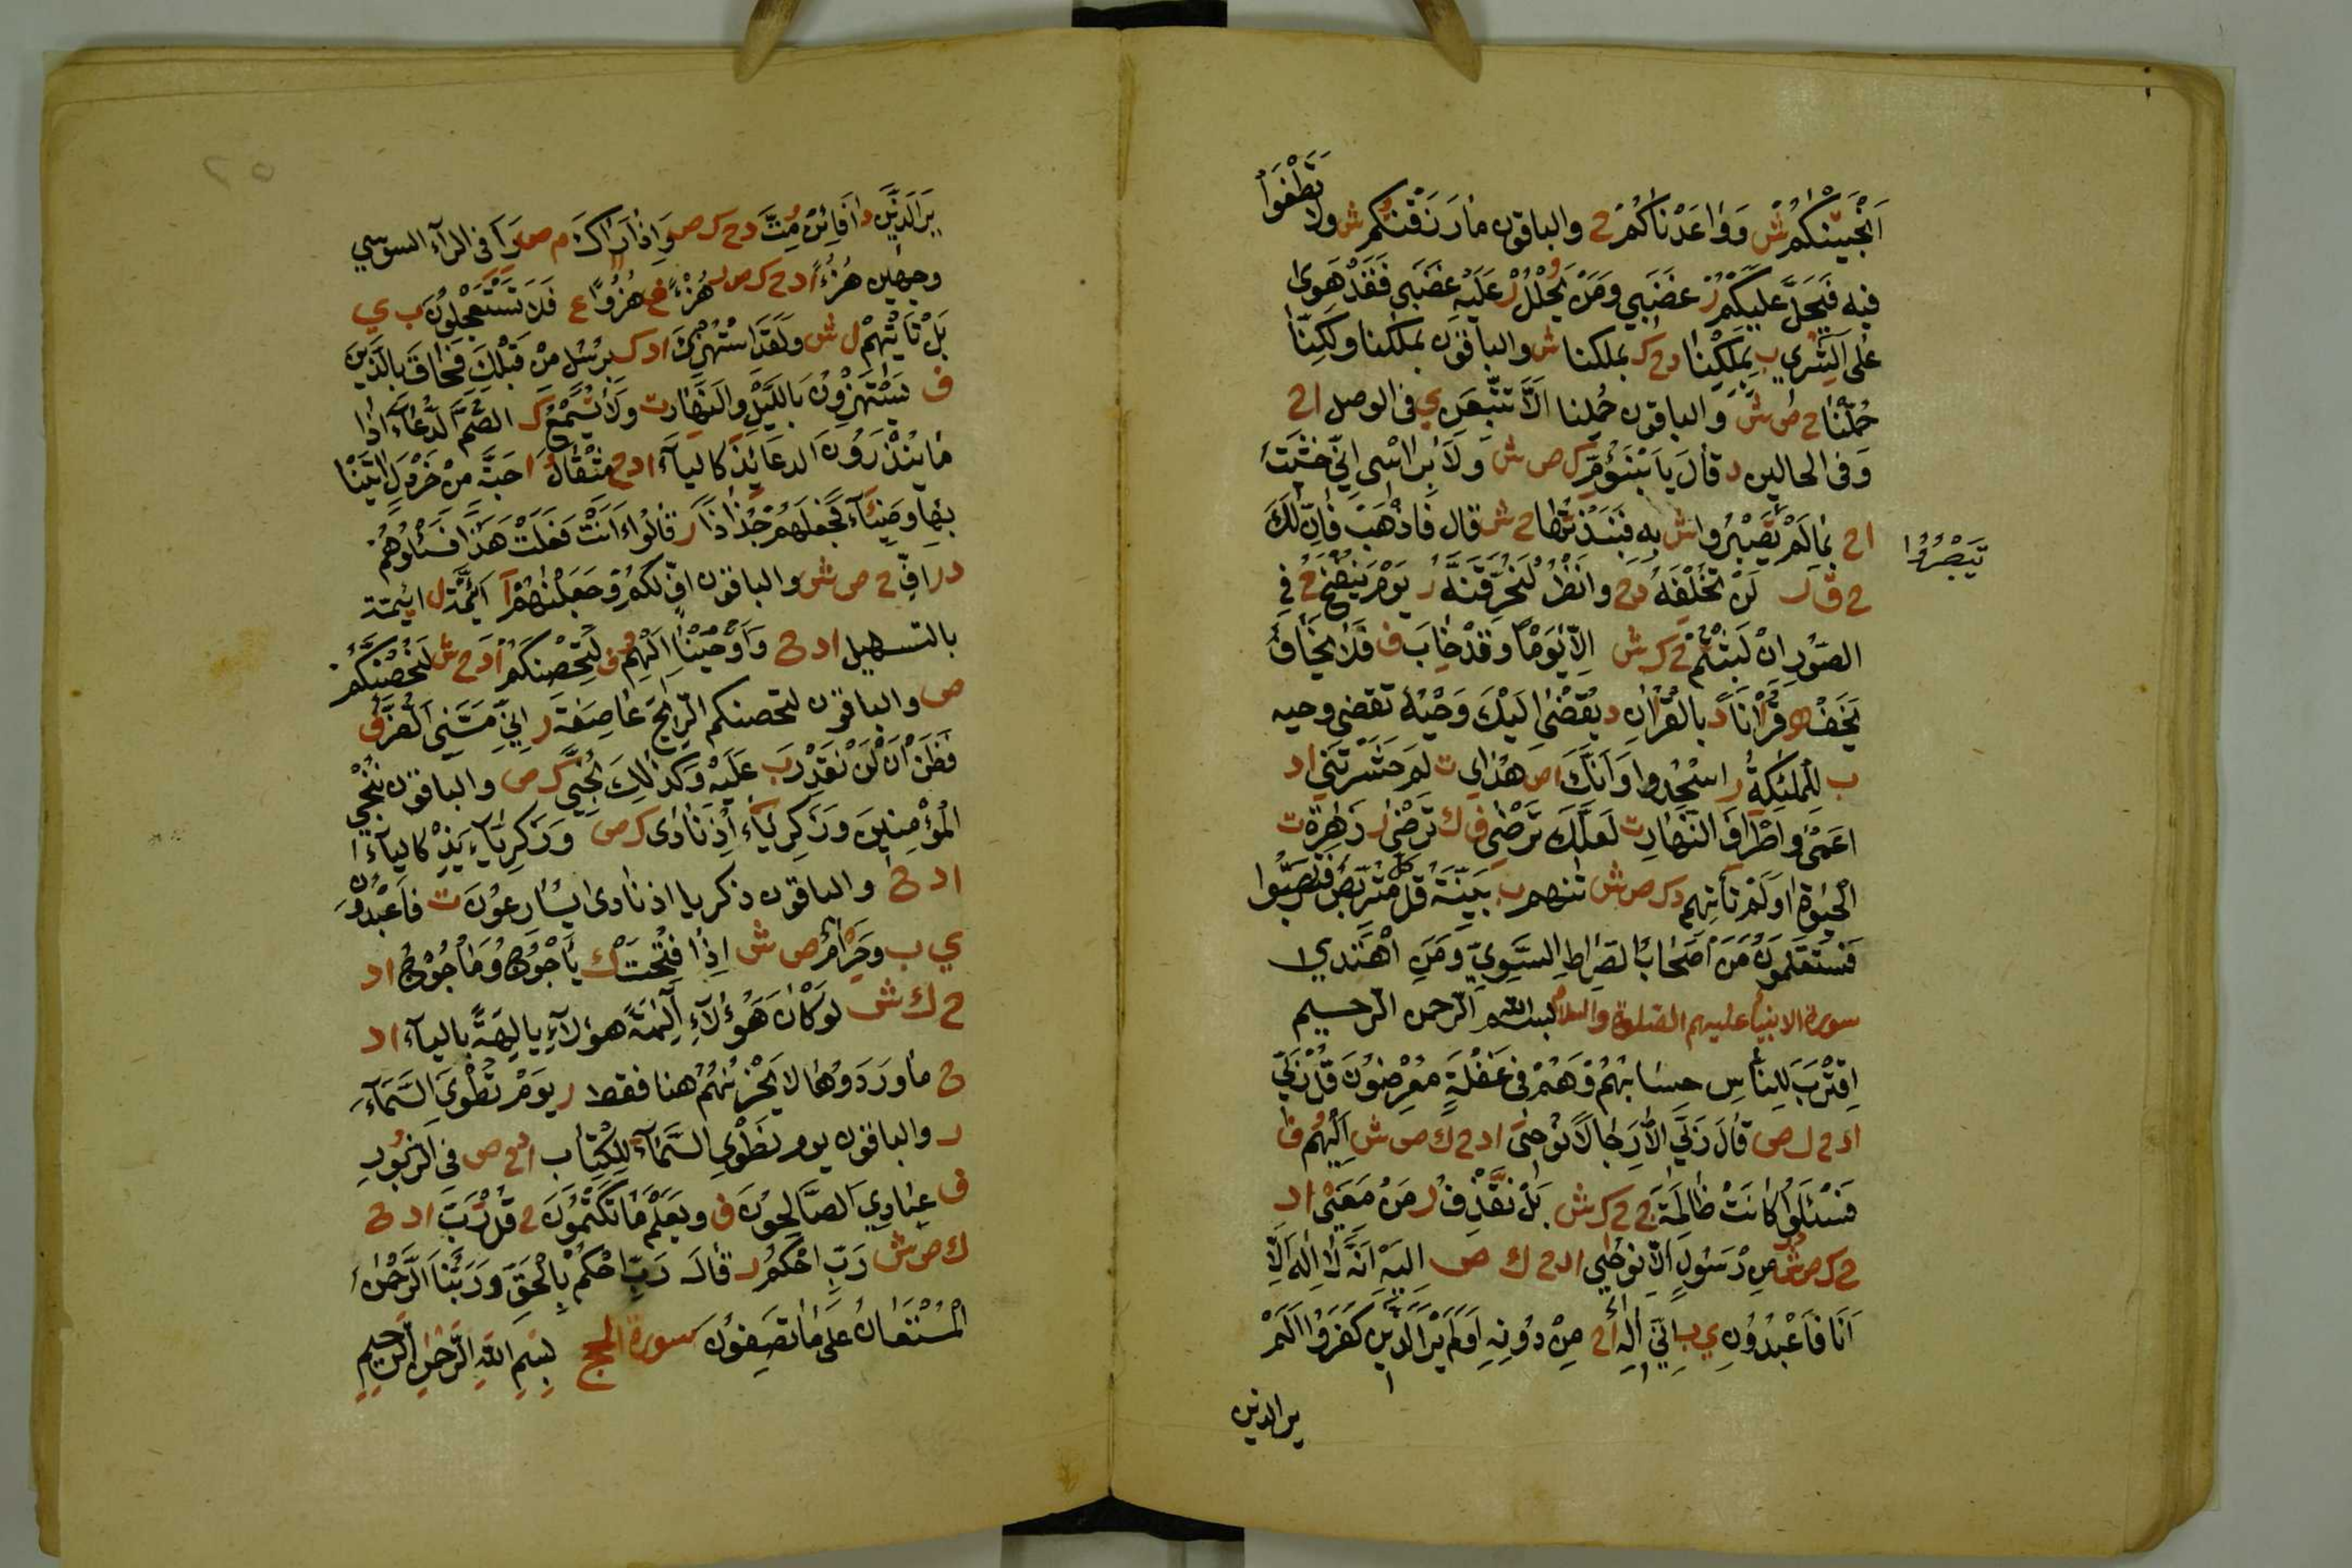 اَنْجَيْتُكُمْ ش وَوَاعَدْنَاكُمْ ح والباقون مَا رَزَقْتُكُمْ ش ولا تَطْغَوْا
فيه فَيَحُلَّ عليكم ر غضبي ومن يَحْلُلْ ر عَلَيْهِ غَضَبِي فَقَدْ هَوى
عَلى اَثَرِي ب بِمَلْكِنَا دح ك بملكنا ش والباقون بملكنا ولكِنّا
حُمِّلْنَا ح ص ش والباقون حملنا اَلَّا تَتَّبِعَنِ ي فى الوصل اح
وَفى الحالين د قَالَ يَا ابْنَؤُمِّ ك ص ش وَلَا بِرَاْسِي اِنِّي خَشِيتُ
اح بِمَا لَمْ تَبْصُرُوا ش بِهِ فَنَبَذْتُهَا ح ش قال فَاذْهَبْ فَاِنَّ لَكَ
تَبْصُرُوا
ح ق ر لَنْ تُخْلِفَهُ دح وانْظُرْ لَنُحَرِّقَنَّهُ ر يَوْمَ يَنْفُخُ ح فِي
الصُّورِ اِنْ لَبِثْتُمْ ح ك ش اِلَّا يَوْمًا وقَدْ خَابَ ف فَلَا يَخَافُ
يَخَفْ د قُرْاٰنًا د بالقُرْاٰنِ د يُقْضٰى اِلَيْكَ وَحْيُهُ تقضى وحيه
ب لِلْمَلٰئِكَةُ ر اسْجُدوا وَاَنَّكَ اص هُدَاي ت لم حَشَرْتَنِي اد
اعمى واَطْرَافَ النَّهَارِ ت لَعَلَّكَ تَرْضٰى ف ك تُرْضٰى ر زَهْرَةَ ت
الحَيٰوةِ اوَلَمْ تَأتِهِم د ك ص ش تأتهم ب بَيِّنَةُ قُل كُلٌّ مُتَرَبِّصٌ فَتَرَبَّصُوا
فَسَتَعْلَمُونَ مَنْ اَصْحَابُ الصِّرَاطِ السَّوِيِّ وَمَنِ اهْتَدٰى
سورة الانبيا عليهم الصلوة والسلام بسم الله الرحمن الرحيم
اِقْتَرَبَ لِلنَّاسِ حِسَابُهُمْ وَهُمْ فى غَفْلَةٍ مُعْرِضُونَ قُلْ رَبِّي
ادح ك ص قَالَ رَبِّي الا رِجَالًا نُوحٰى ادح ك ص ش اِلَيْهُمْ ف
فَسْئَلُوا كَانَتْ ظَالِمَةً ح ح ك ش بَلْ نَقْذِفُ ر مَنْ مَعِيَ اد
ح ك ص ش مِنْ رَسُولٍ اِلَّا نُوحٰى ادح ك ص اِلَيْهِ اَنَّهُ لَا اِلٰهَ اِلَّا
اَنَا فَاعْبُدُونِ ي ب اِنِّي اِلٰهٌ اح مِنْ دُونِهِ اَوَلَمْ يَرَ الَّذِينَ كَفَرُوا اَلَمْ
ير الذين
٢٥
يَرَ الَّذِينَ د اَفَائِنْ مُتَّ دح ك ص وَاِذَا رَاٰكَ م ص رَاٰ فى الرآء السوسي
وجهين هُزُءًا ادح ك ص ر هُزْءًا ف هُزُوًا ع فَلَا تَسْتَعْجِلُونِ ب ي
بَلْ تَاْتِيْهِمْ ل ش ولَقَدُ اسْتُهْزِئَ اد ك بِرُسُلٍ مِنْ قَبْلِكَ فَحَاقَ بالَّذِينَ
ف يَسْتَهْزِؤُنَ بِاللَّيْلِ والنَّهَارِ ت وَلَا تُسْمِعُ ك الصُّمَّ الدُّعَاءَ اِذَا
مَا يُنْذَرُونَ الدعا يَذ كاليآء ادح مِثْقَالُ ا حَبَّةٍ مِنْ خَرْدَلٍ اَتَيْنَا
بِهَا وضِئَاءً فَجَعَلَهُمْ جُذَاذًا ر قَالُوا ءَاَنْتَ فَعَلْتَ هٰذَا فَسْئَلُوهُمْ
د ر اُفِّ ح ص ش والباقون اُفٍّ لَكُمْ وَجَعَلْنٰهُمْ ا اَئِمَّةً ل ائيمة
بالتسهيل ادح وَاَوْحَيْنَا اِلَيْهُمْ ف لِيُحْصِنَكُمْ ادح ش لِتُحْصِنَكُمْ
ص والباقون لتحصنكم الرِّيحَ عَاصِفَةً ر اَنِّي مَسَّنِيَ الضُّرُّ ف
فَظَنَّ اَنْ لَنْ نَقْدِرَ ب عَلَيْهِ وكَذٰلِكَ نُجِّي ك ص والباقون نُنْجِي
الْمُؤْمِنِينَ وَزَكَرِيَّاءَ اِذْ نَادٰى ك ص وَزَكَرِيَّاءَ يَذ كاليآء ا
ادح والباقون زكريا اذ نادى يُسَارِعُونَ ت فَاعْبُدُونِ
ي ب وَحِرْمٌ ص ش اِذَا فُتِّحَتْ ك يَاْجُوجُ وَمَاْجُوجُ اد
ح ك ش لَوْ كَانَ هٰؤُلَاءِ اٰلِهَةً هؤلآءِ يالِهَةً باليآء اد
ح مَا وَرَدُوهَا لَا يَحْزُنُهُمْ هنا فقط ر يَوْمَ تُطْوَى السَّمَآءُ
ر والباقون يوم نَطْوِي السَّمَآءَ لِلْكِتَابِ ادح ص فى الزُّبُورِ
ف عِبَادِيَ الصَّالِحُونَ ف ويَعْلَمُ مَا تَكْتُمُونَ ح قُلْ رَبِّ ادح
ك ص ش رَبِّ احْكُمْ ر قَالَ رَبِّ احْكُمْ بِالْحَقِّ وَرَبُّنَا الرَّحْمٰنُ
الْمُسْتَعَانُ عَلٰى مَا تَصِفُونَ سورة الحج بِسْمِ اللّٰهِ الرَّحْمٰنِ الرَّحِيمِ